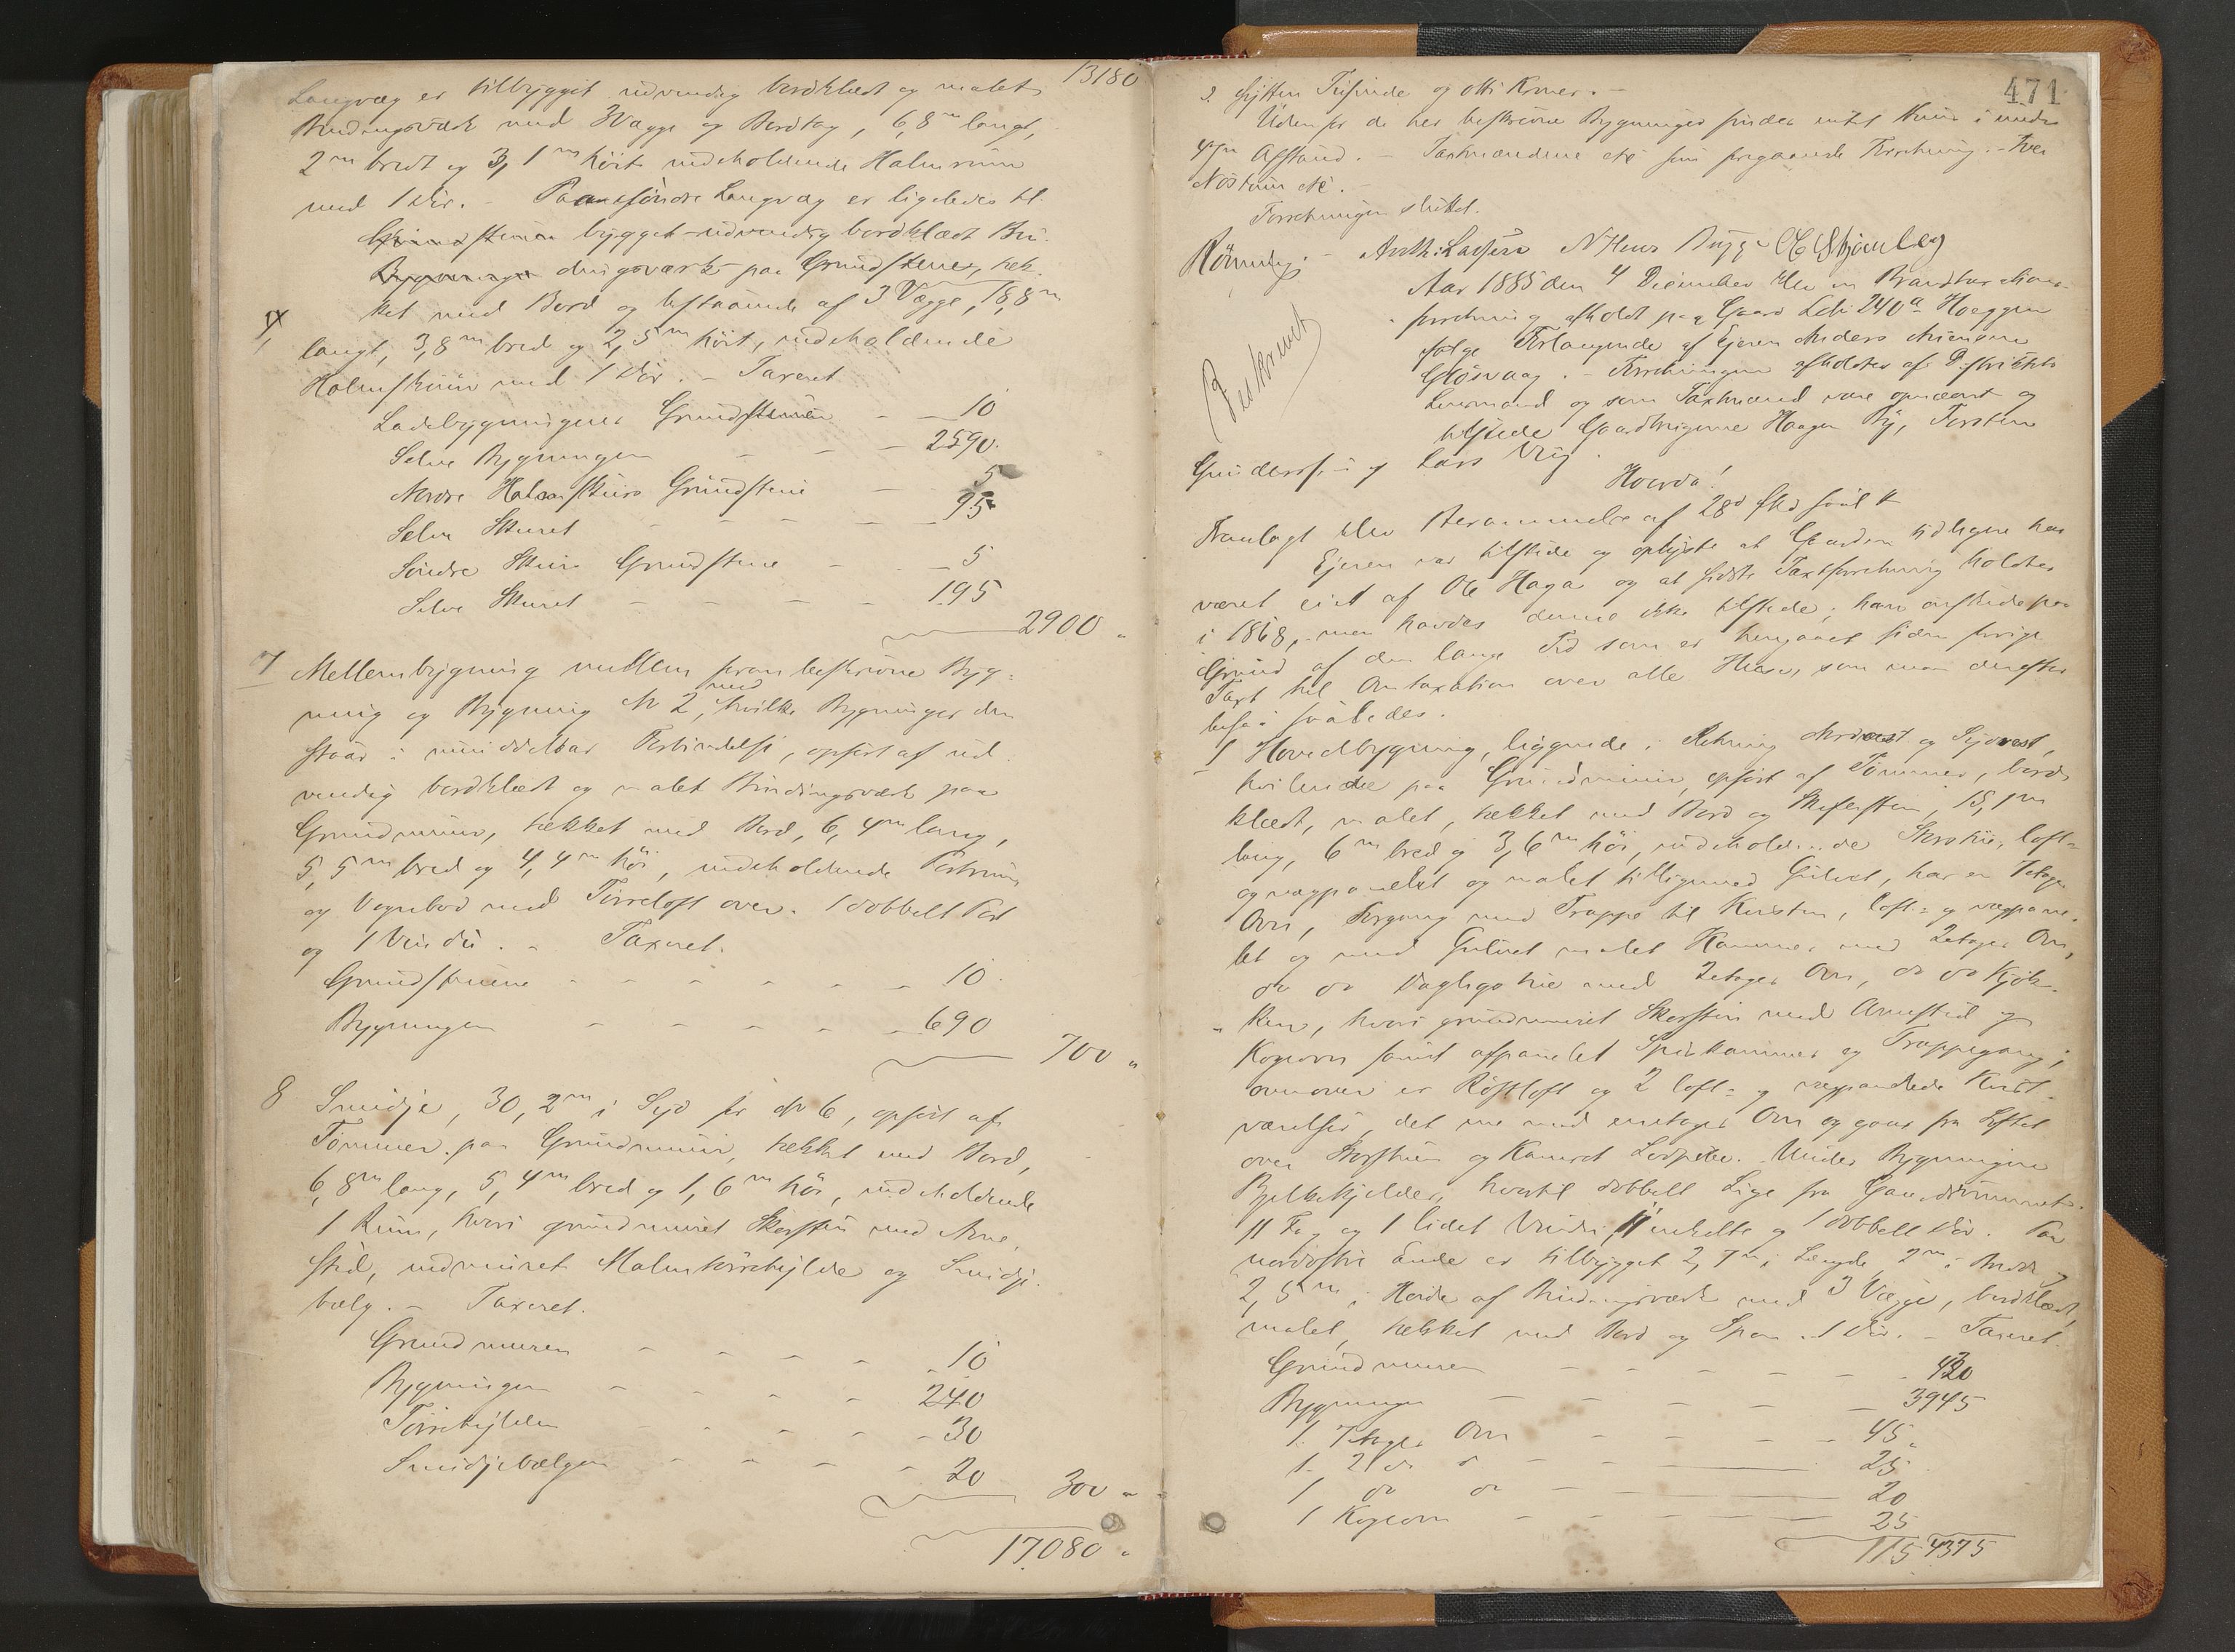 13180
Langvæg er tilbygget udvendig bordklædt og malet
Bindingsværk med 3 Vægge og Bordtag, 6,8 m langt,
2 m bredt og 3,1 m høit indeholdende Halmrum
med 1 Dør. - Paa søndre Langvæg er ligeledes til
bygget udvendig bordklædt Bin
dingsværk paa Grundstene, tæk
ket med Bord og bestaaende af 3 Vægge, 18,8 m
langt, 3,8 m bred og 2,5 m høit, indeholdende
Halmskuur med 1 Dør. - Taxeret
Ladebygningens Grundstene - - 10
Selve Bygningen - - - 2590.
Nordre Halmskuurs Grundstene - 5
Selve Skuret - - - - 95
Søndre Skuurs Grundstene - - 5
Selve Skuret - - - - 195
2900 "
7 Mellembygning mellem foran beskrevne Byg-
ning og Bygning № 2, med hvilke Bygninger den
staar i umiddelbar Forbindelse, opført af ud
vendig bordklædt og malet Bindingsværk paa
Grundmuur, tækket med Bord, 6,4 m lang,
5,5 m bred og 4,4 m høi, indeholdende Portrum
og Vognbod med Tørreloft over. 1 dobbelt Port
og 1 Vindu. - Taxeret.
Grundstenene - - - - - - 10
Bygningen - - - - - 690
700 "
8 Smidje, 30,2 m i Syd for № 6, opført af
Tømmer paa Grundmuur, tækket med Bord,
6,8 m lang, 5,4 m bred og 1,6 m høi, indeholdende
1 Rum, hvori grundmuret Skorsten med Arne
sted, indmuret Malttørrehylde og Smidje
bælg. - Taxeret.
Grundmuren - - - - 10
Bygningen - - - - 240
Tørrehylden - - - 30
Smidjebælgen - - - - 20
300 "
17080 "
471
Sytten Tusinde og otti Kroner. -
Udenfor de her beskrevne Bygninger findes intet Huus i mindre
Afstand. - Taxtmændene foregaaende Forretning. -
Forretningen sluttet.
Rönneberg. - N Hans Bugge
Beskrevet
Aar 1885 den 4 December blev en Brandtaxations-
forretning afholdt paa Gaard Lit. 240 a Hoeggen
følge Forlangende af Ejeren Anders
. - Forretningen afholdtes af Distrikts
Lensmand og som Taxtmænd vare opnævnt og
tilstede Gaardbrugerne Haagen By, Torsten
Gunderssen og Lars Vig.
Hvorda!
Fremlagt blev Berammelse af 28de
Ejeren var tilstede og oplyste at Gaarden tidligere har
været eiet af Ole Haga og at sidste Taxtforretning holdtes
i 1868, men havdes denne ikke tilstede; han ønskede paa
Grund af den lange Tid som er hengaaet siden forrige
Taxt til Omtaxation over alle Huse, som man derefter
besaa saaledes.
1 Hovedbygning, liggende i Retning Nordøst og Sydvest,
hvilende paa Grundmuur, opført af Tømmer, bord-
klædt, malet, tækket med Bord og Skifersten, 15,1 m
lang, 6 m bred og 3,6 m høi, indeholdende Storstue, loft-
og vægpanelet og malet tilligemed Gulvet, har en 7etages
Ovn, Forgang med Trappe til Kvisten, loft- og vægpane-
let og med Gulvet malet Kammer med 2etages Ovn,
do do Dagligstue med 2etages Ovn, do do Kjøk-
ken, hvori grundmuret Skorsten med Arnested og
Kogeovn samt afpanelet Spiskammer og Trappegang;
ovenover er Røstloft og 2 loft- og vægpanelede Kvist-
værelser, det ene med enetages Ovn og gaar fra Loftet
over Storstuen og Kamret Lodpibe. Under Bygningen
Bjelkekjelder, hvortil dobbelt Lúge fra Gaardsrummet.
11 Fag og 1 lidet Vindu, 11 enkelte og 1 dobbelt Dør. Paa
nordøstre Ende er tilbygget 2,7 m i Længde, 2 m i Bredde og
2,5 m i Høide af Bindingsværk med 3 Vægge, bordklædt,
malet, tækket med Bord og Spon. 1 Dør. - Taxeret.
Grundmuren - - - - - -
Bygningen - - - - - 3945
1 7etages Ovn - - - - 45
1 2 do d - - 25
1 do do - 20
1 Kogeovn - - - 25
115 4375